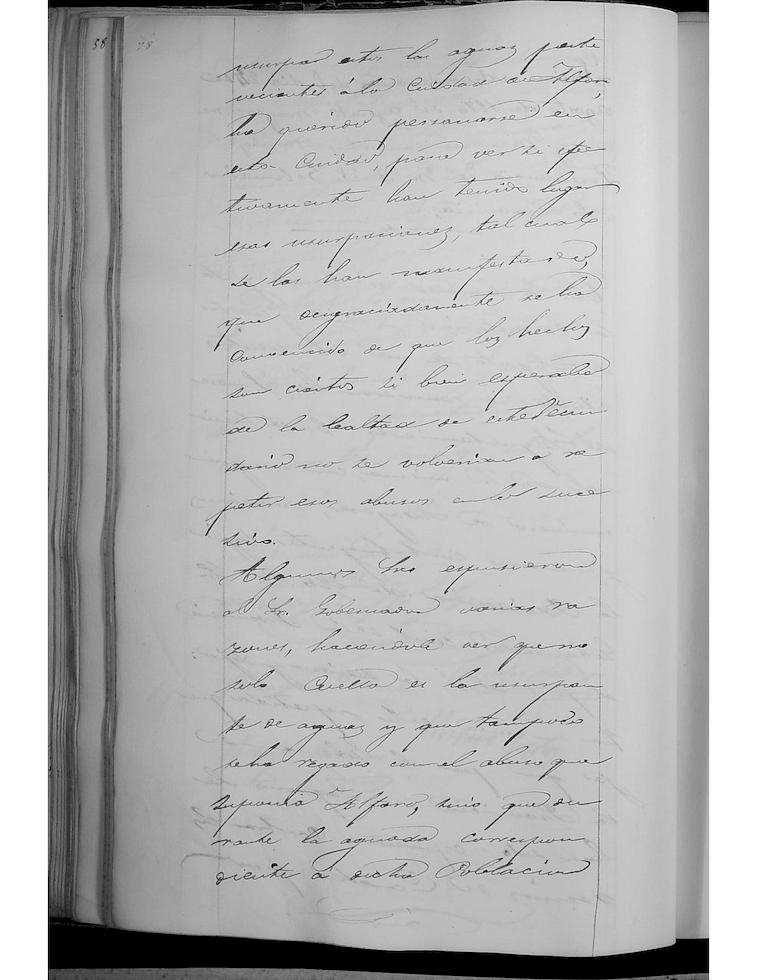 58 78
usurpar estos las aguas perte
necientes á la Ciudad de Alfaro,
ha querido personarse en
esta Ciudad, para ver si efec
tivamente han tenido lugar
esas usurpaciones, tal cual
se las han manifestado,
que desgraciadamente se ha
convencido de que los hechos
son ciertos si bien esperaba
de la lealtad de este Vecin
dario no se volverian a re
petir esos abusos en lo suce
sivo.
Algunos Sres expusieron
al Sr. Gobernador varias ra
zones, haciendole ver que no
solo es la usurpan
te de aguas y que tampoco
se ha regado con el abuso que
suponia Alfaro, sino que du
rante la aguada correspon
diente á dicha Poblacion